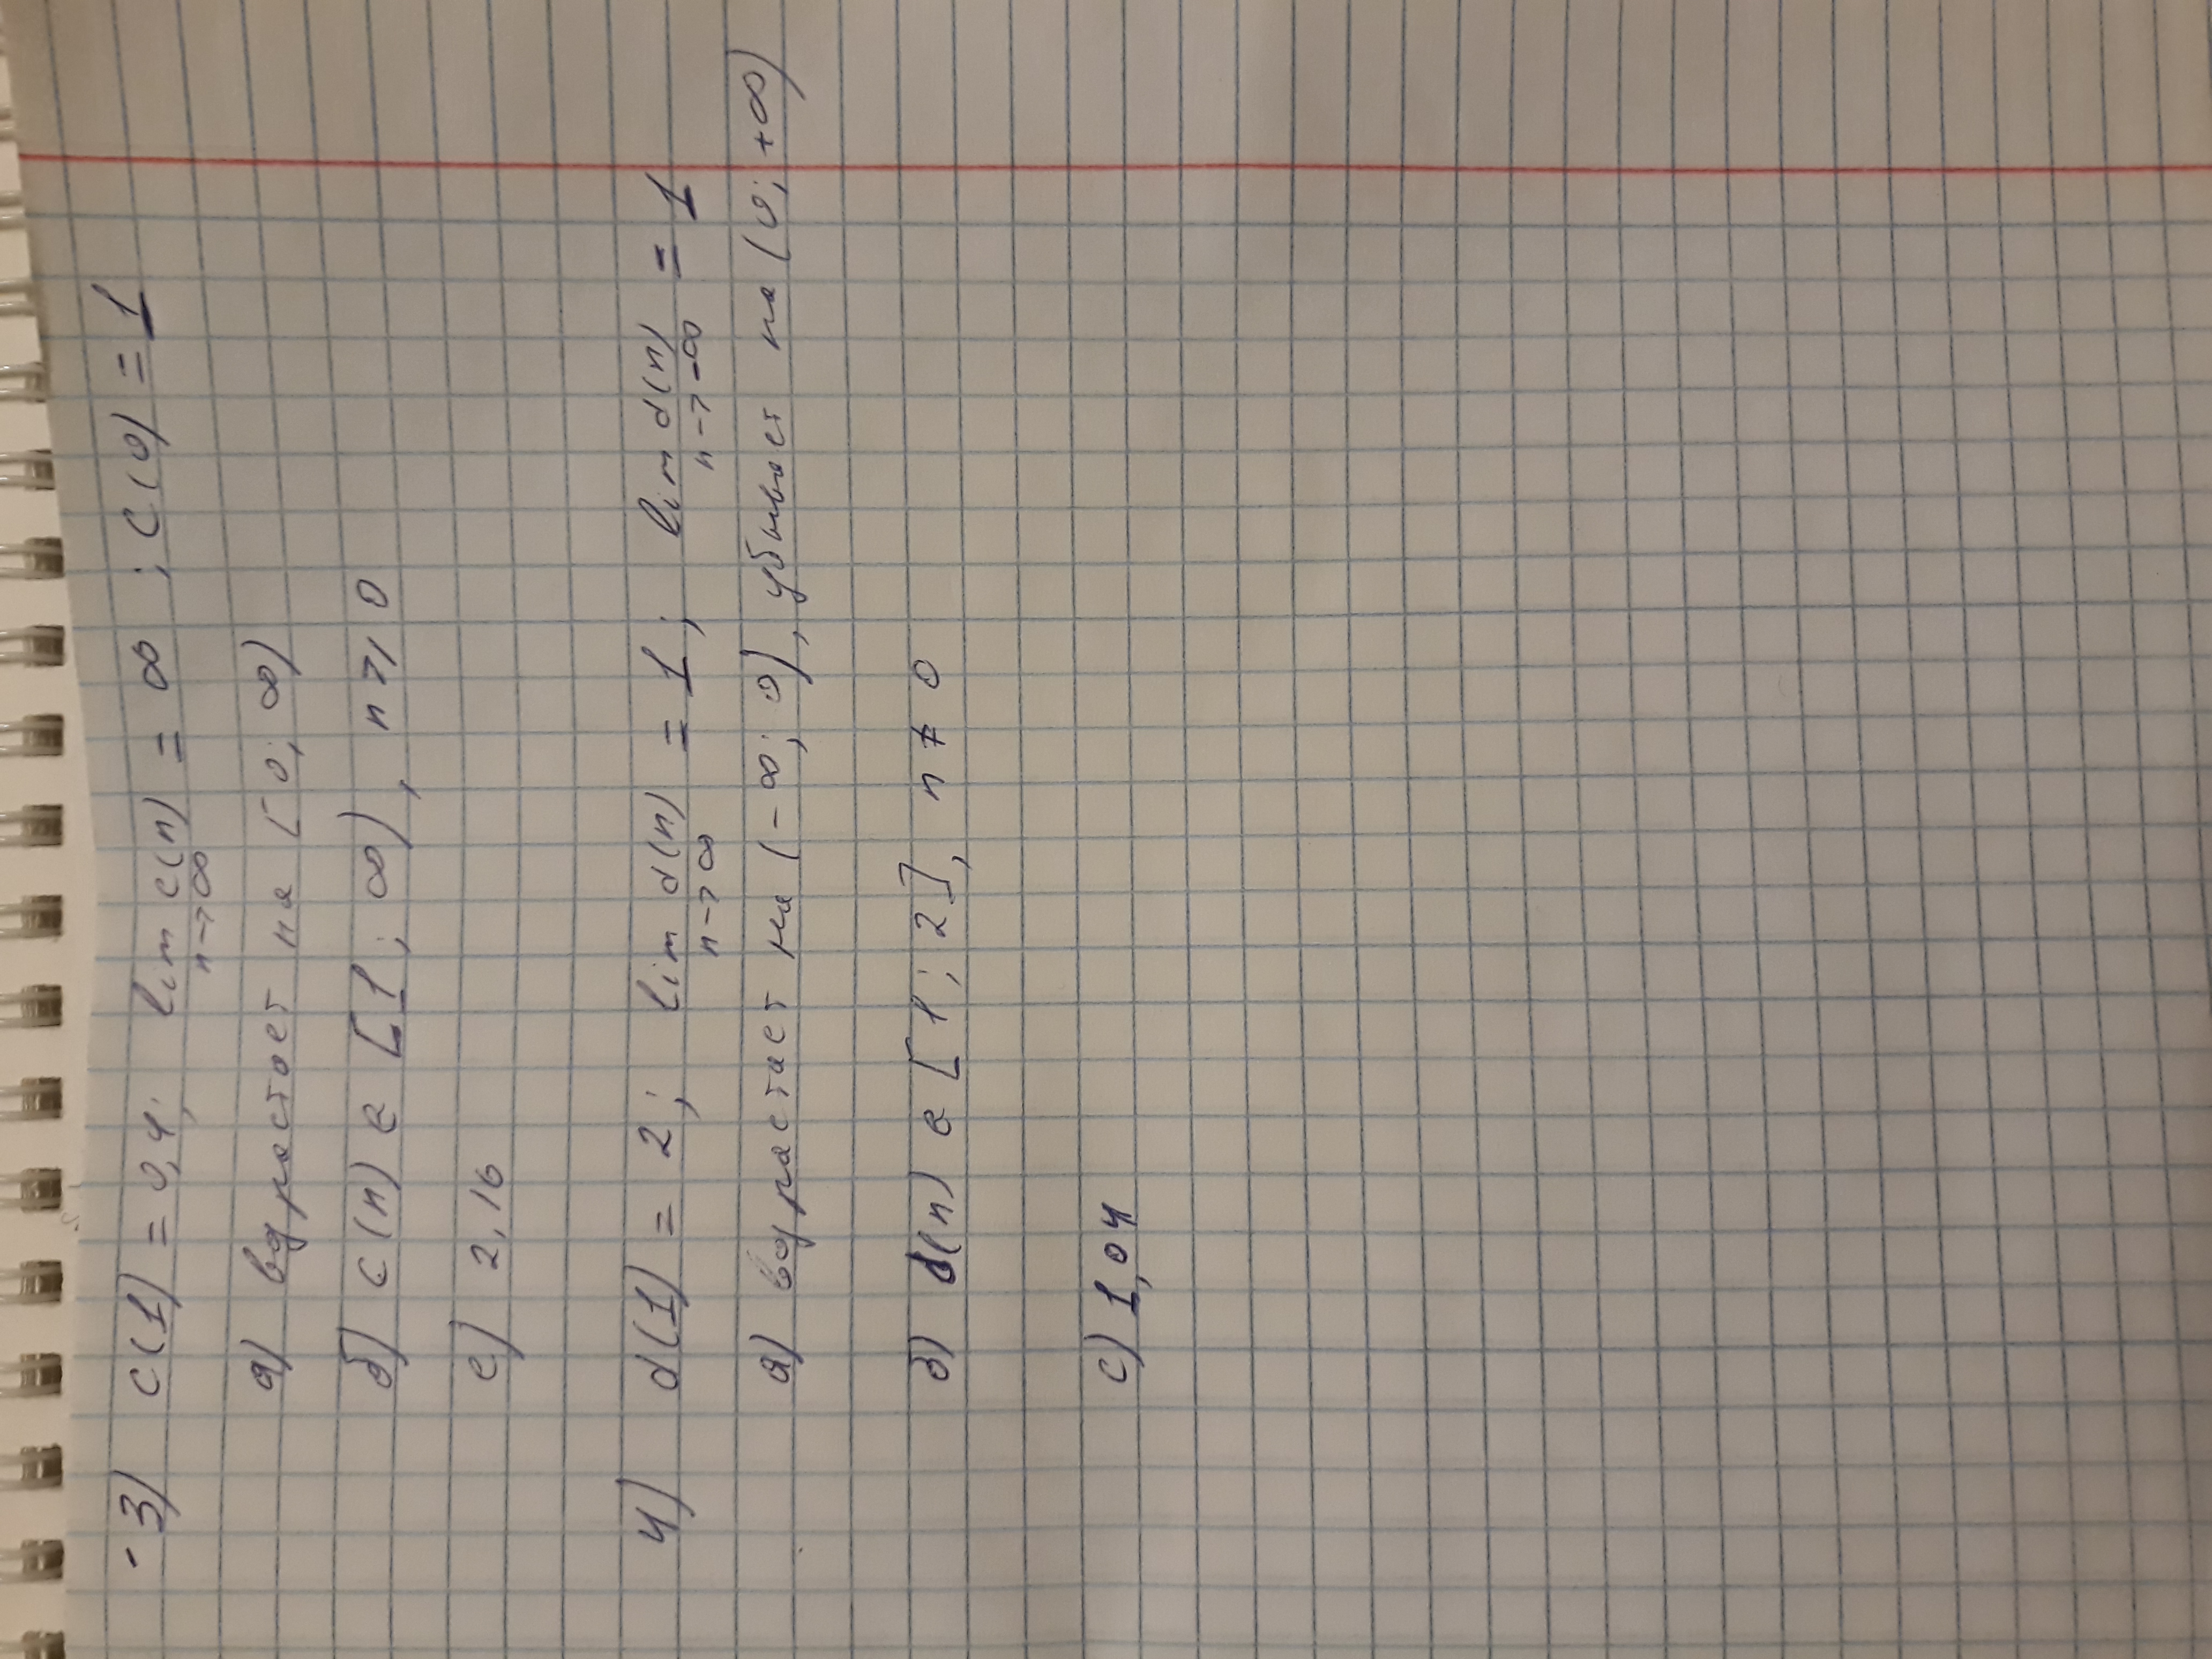 3) c(1) = 0,4; lim c(n) = ∞ ; c(0) = 1
n->∞
а) возрастает на [0; ∞)
б) c(n) ∈ [1; ∞), n ⩾ 0
c) 2,16
4) d(1) = 2; lim d(n) = 1; lim d(n) = 1
n->∞ n->-∞
а) возрастает на (-∞; 0), убывает на (0; +∞)
б) d(n) ∈ [1; 2], n ≠ 0
c) 1,04